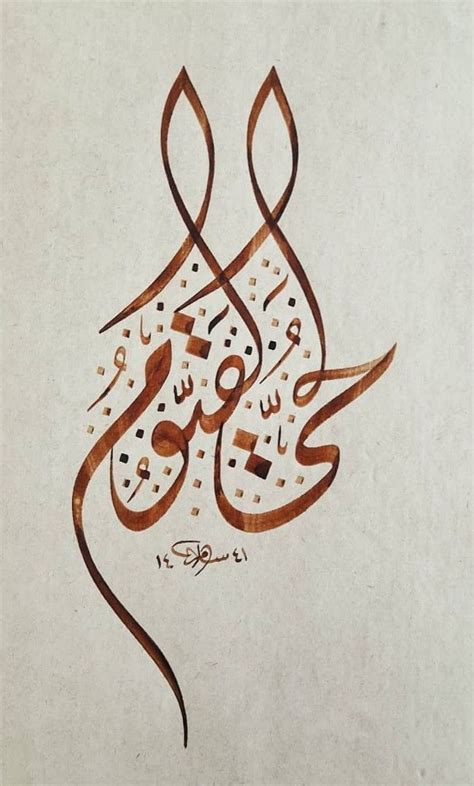 الحَيُّ القَيُّومُ
١٤ ٤١